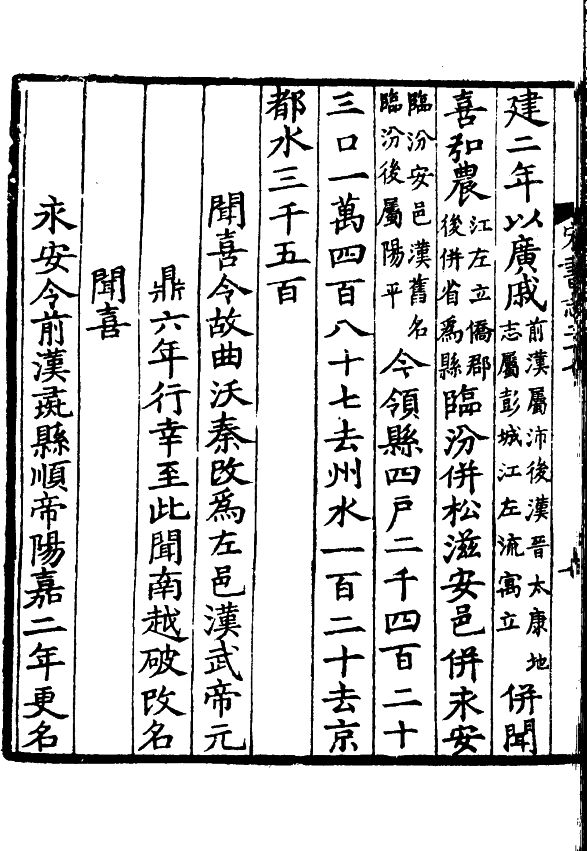 建二年以廣戚前漢屬沛後漢晉太康地志屬彭城江左流寓立併聞
喜弘農江左立僑郡後併省爲縣臨汾併松滋安邑併永安
臨汾安邑漢舊名臨汾後屬陽平今領縣四戶二千四百二十
三口一萬四百八十七去州水一百二十去京
都水三千五百
聞喜令故曲沃秦改爲左邑漢武帝元
鼎六年行幸至此聞南越破改名
聞喜
永安令前漢彘縣順帝陽嘉二年更名